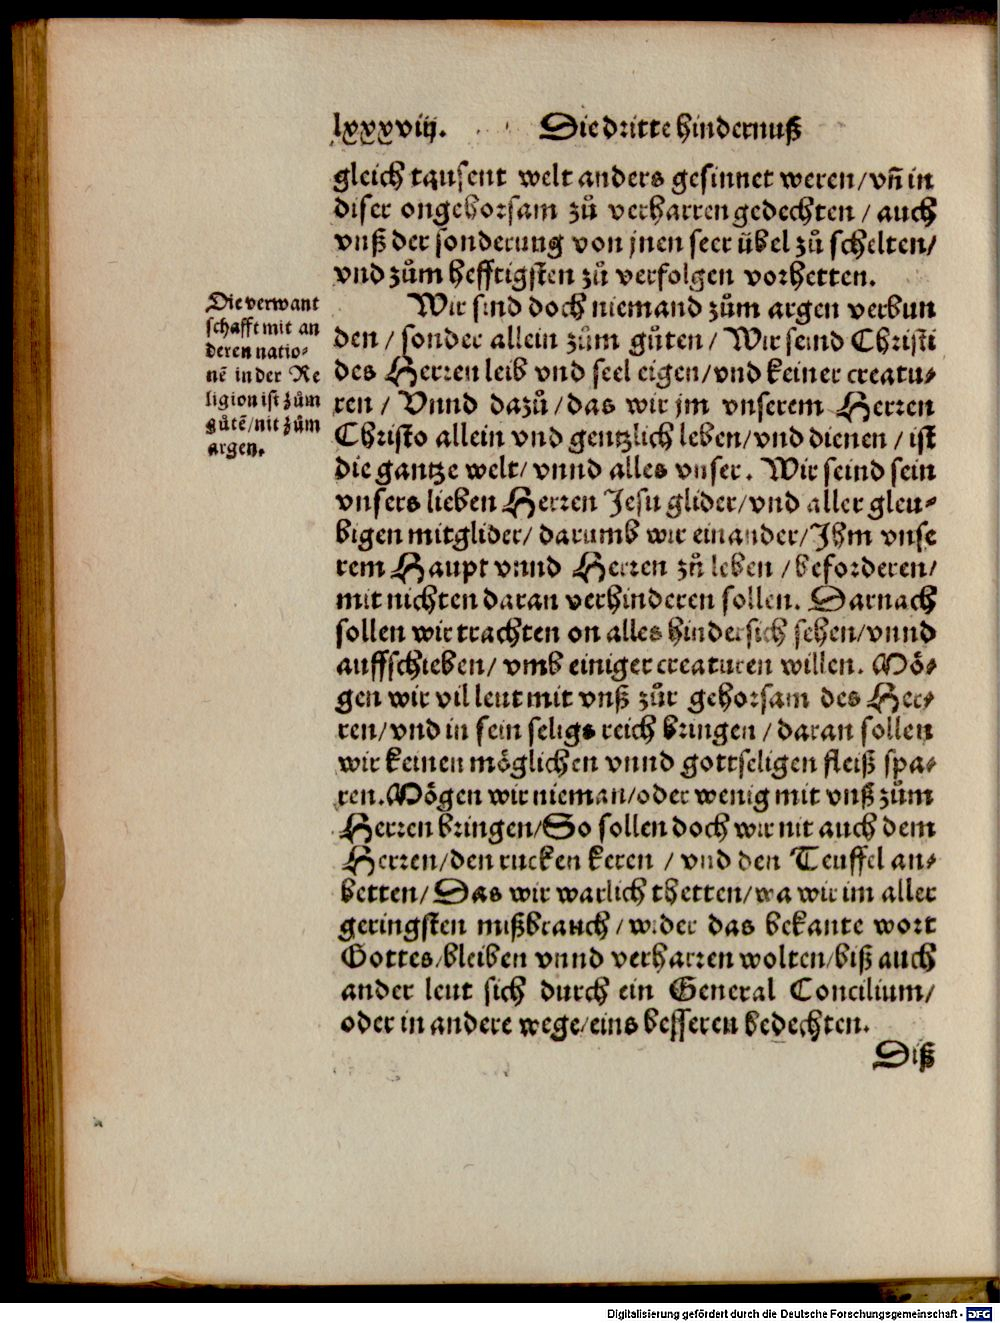 lxxxviij. Die dritte hindernuß
gleich tausent welt anders gesinnet weren/vñ in
diser ongehorsam zů verharren gedechten / auch
vnß der sonderung von jnen seer übel zů schelten/
vnd zům hefftigsten zů verfolgen vorhetten.
Die verwant
schafft mit an
deren natio⸗
nẽ in der Re
ligion ist zům
gůtẽ/nit zům
argen.
Wir sind doch niemand zům argen verbun
den / sonder allein zům gůten/ Wir seind Christi
des Herren leib vnd seel eigen/vnd keiner creatu⸗
ren / Vnnd dazů/das wir jm vnserem Herren
Christo allein vnd gentzlich leben/vnd dienen / ist
die gantze welt/ vnnd alles vnser. Wir seind sein
vnsers lieben Herren Jesu glider/vnd aller gleu⸗
bigen mitglider/ darumb wir einander/Ihm vnse
rem Haupt vnnd Herren zů leben /beforderen/
mit nichten daran verhinderen sollen. Darnach
sollen wir trachten on alles hindersich sehen/vnnd
auffschieben/ vmb einiger creaturen willen. Mö⸗
gen wir vil leut mit vnß zůr gehorsam des Her⸗
ren/vnd in sein seligs reich bringen /daran sollen
wir keinen möglichen vnnd gottseligen fleiß spa⸗
ren.Mögen wir nieman/oder wenig mit vnß zům
Herren bringen/So sollen doch wir nit auch dem
Herren/den rucken keren / vnd den Teuffel an⸗
betten/Das wir warlich thetten/wa wir im aller
geringsten mißbrauch /wider das bekante wort
Gottes/bleiben vnnd verharren wolten/biß auch
ander leut sich durch ein General Concilium/
oder in andere wege/eins besseren bedechten.
Diß
Digitalisierung gefördert durch die Deutsche Forschungsgemeinschaft - DFG